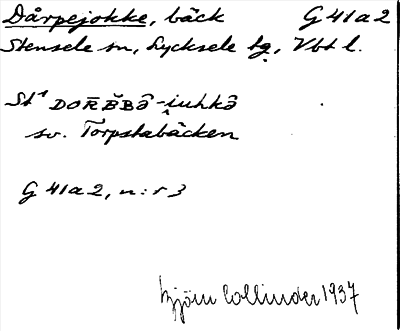 Dårpejokke, bäck G 41 a 2
Stensele sn, Lycksele tg, Vbt l.
St¹ DOR̄B̆BÔ-i̭uhkô
sv. Torpstabäcken
G 41 a 2, n:r 3
Björn Collinder 1937